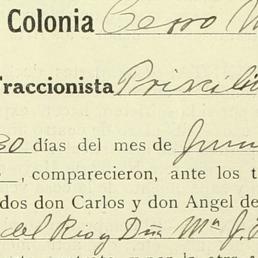 Colonia Cerro
Fraccionista Priscil
30 días del mes de Jun
, comparecieron, ante los t
dos don Carlos y don Angel de
del Rio y Dña Mª J.